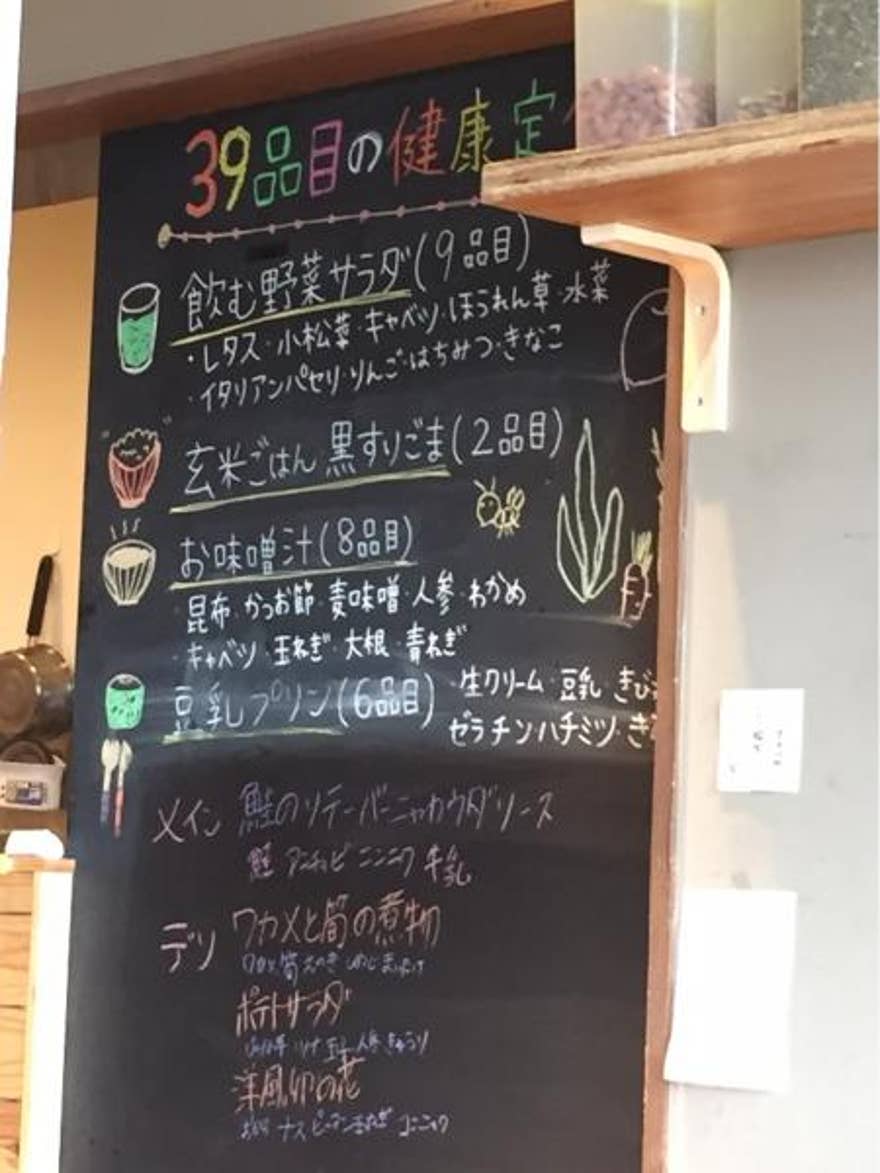 39品目の健康定
飲む野菜サラダ(9品目)
・レタス・小松菜・キャベツ・ほうれん草・水菜
・イタリアンパセリ・りんご・はちみつ・きなこ
玄米ごはん 黒すりごま(2品目)
お味噌汁(8品目)
・昆布・かつお節・麦味噌・人参・わかめ
・キャベツ・玉ねぎ・大根・青ねぎ
豆乳プリン(6品目)
・生クリーム・豆乳・きび
ゼラチンハチミツ・き
メイン 鮭のソテーバーニャカウダソース
鮭 アンチョビ ニンニク 牛乳
デリ ワカメと筍の煮物
ワカメ 筍 えのき しめじ まいたけ
ポテトサラダ
ツナ 玉子 人参 きゅうり
洋風卯の花
ナス ピーマン 玉ねぎ コンニャク